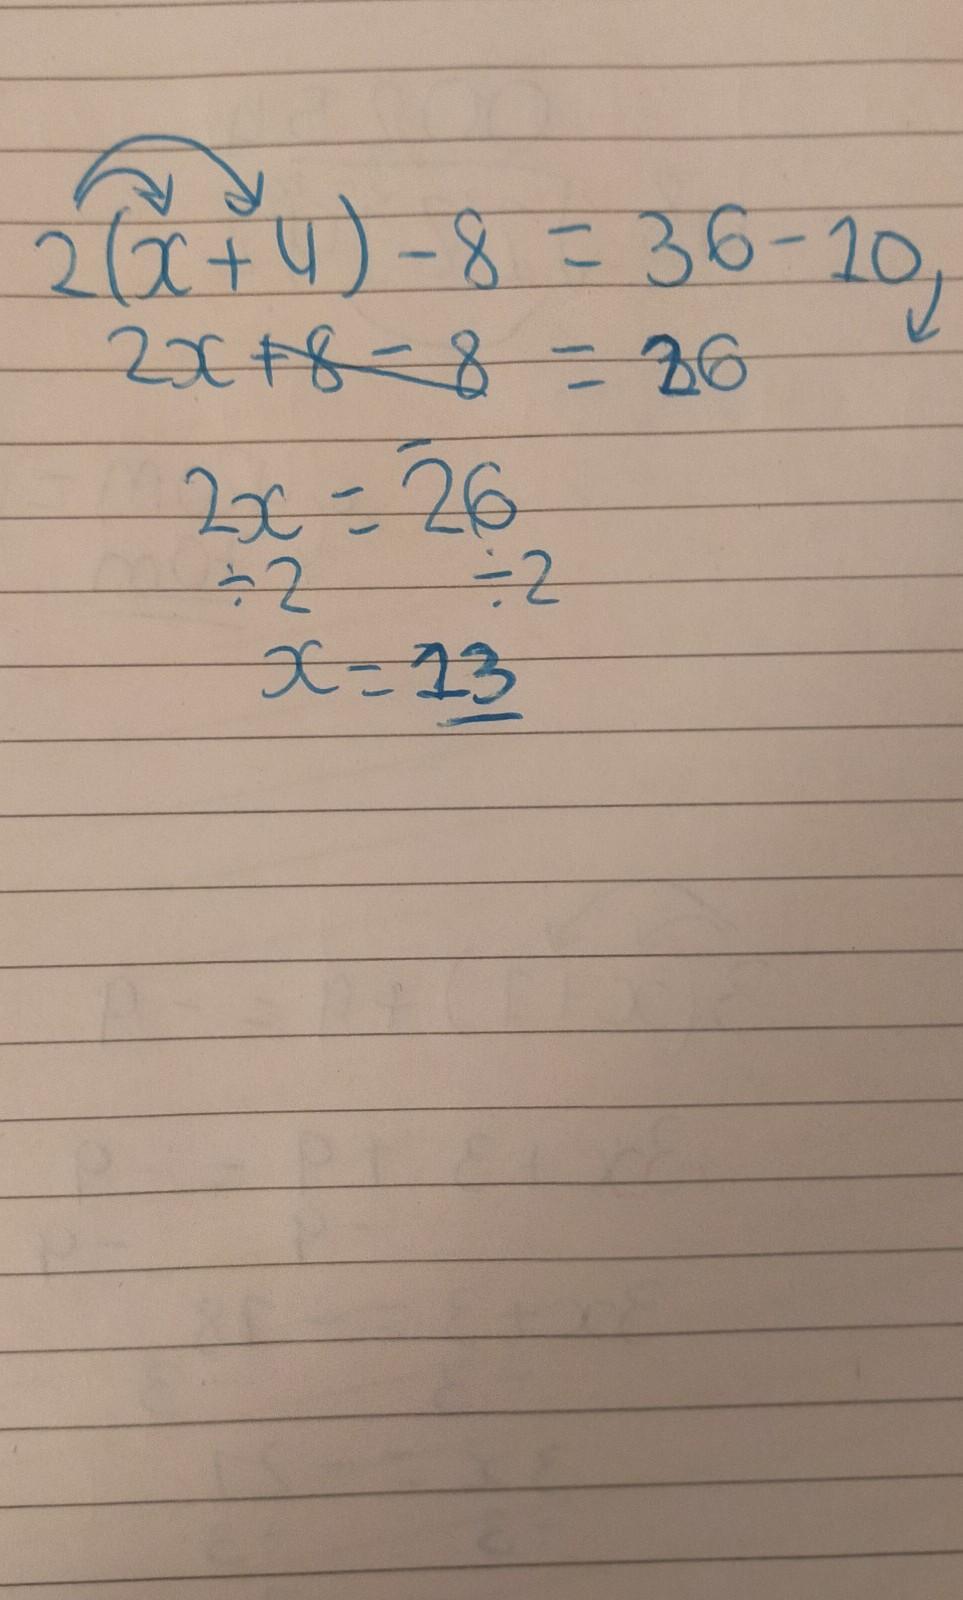 2(x+4)-8 = 36-10,
2x+8-8 = 26
2x = 26
÷2 ÷2
x = 13